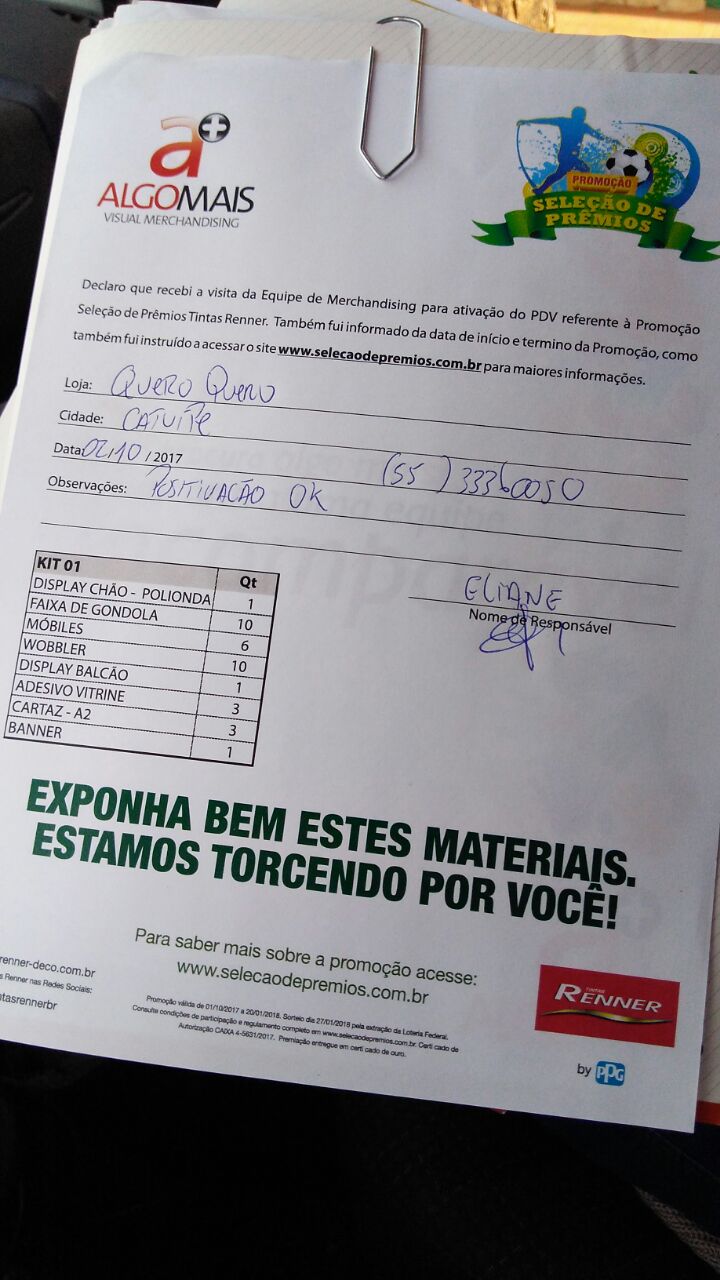 a+
ALGOMAIS
VISUAL MERCHANDISING
PROMOÇÃO
SELEÇÃO DE
PRÊMIOS
Declaro que recebi a visita da Equipe de Merchandising para ativação do PDV referente à Promoção
Seleção de Prêmios Tintas Renner. Também fui informado da data de início e termino da Promoção, como
também fui instruído a acessar o site www.selecaodepremios.com.br para maiores informações.
Loja: QUERO QUERO
Cidade: CATUÍPE
Data: 02/10 / 2017 (55) 33360050
Observações: POSITIVAÇÃO OK
ELIANE
Nome de Responsável
KIT 01 Qt
DISPLAY CHÃO - POLIONDA 1
FAIXA DE GONDOLA 10
MÓBILES 6
WOBBLER 10
DISPLAY BALCÃO 1
ADESIVO VITRINE 3
CARTAZ - A2 3
BANNER 1
EXPONHA BEM ESTES MATERIAIS.
ESTAMOS TORCENDO POR VOCÊ!
Para saber mais sobre a promoção acesse:
www.selecaodepremios.com.br
renner-deco.com.br
s Renner nas Redes Sociais:
ntasrennerbr
Promoção válida de 01/10/2017 a 20/01/2018. Sorteio dia 27/01/2018 pela extração da Loteria Federal.
Consulte condições de participação e regulamento completo em www.selecaodepremios.com.br. Certi cado de
Autorização CAIXA 4-5631/2017. Premiação entregue em certi cado de ouro.
TINTAS
RENNER
by PPG